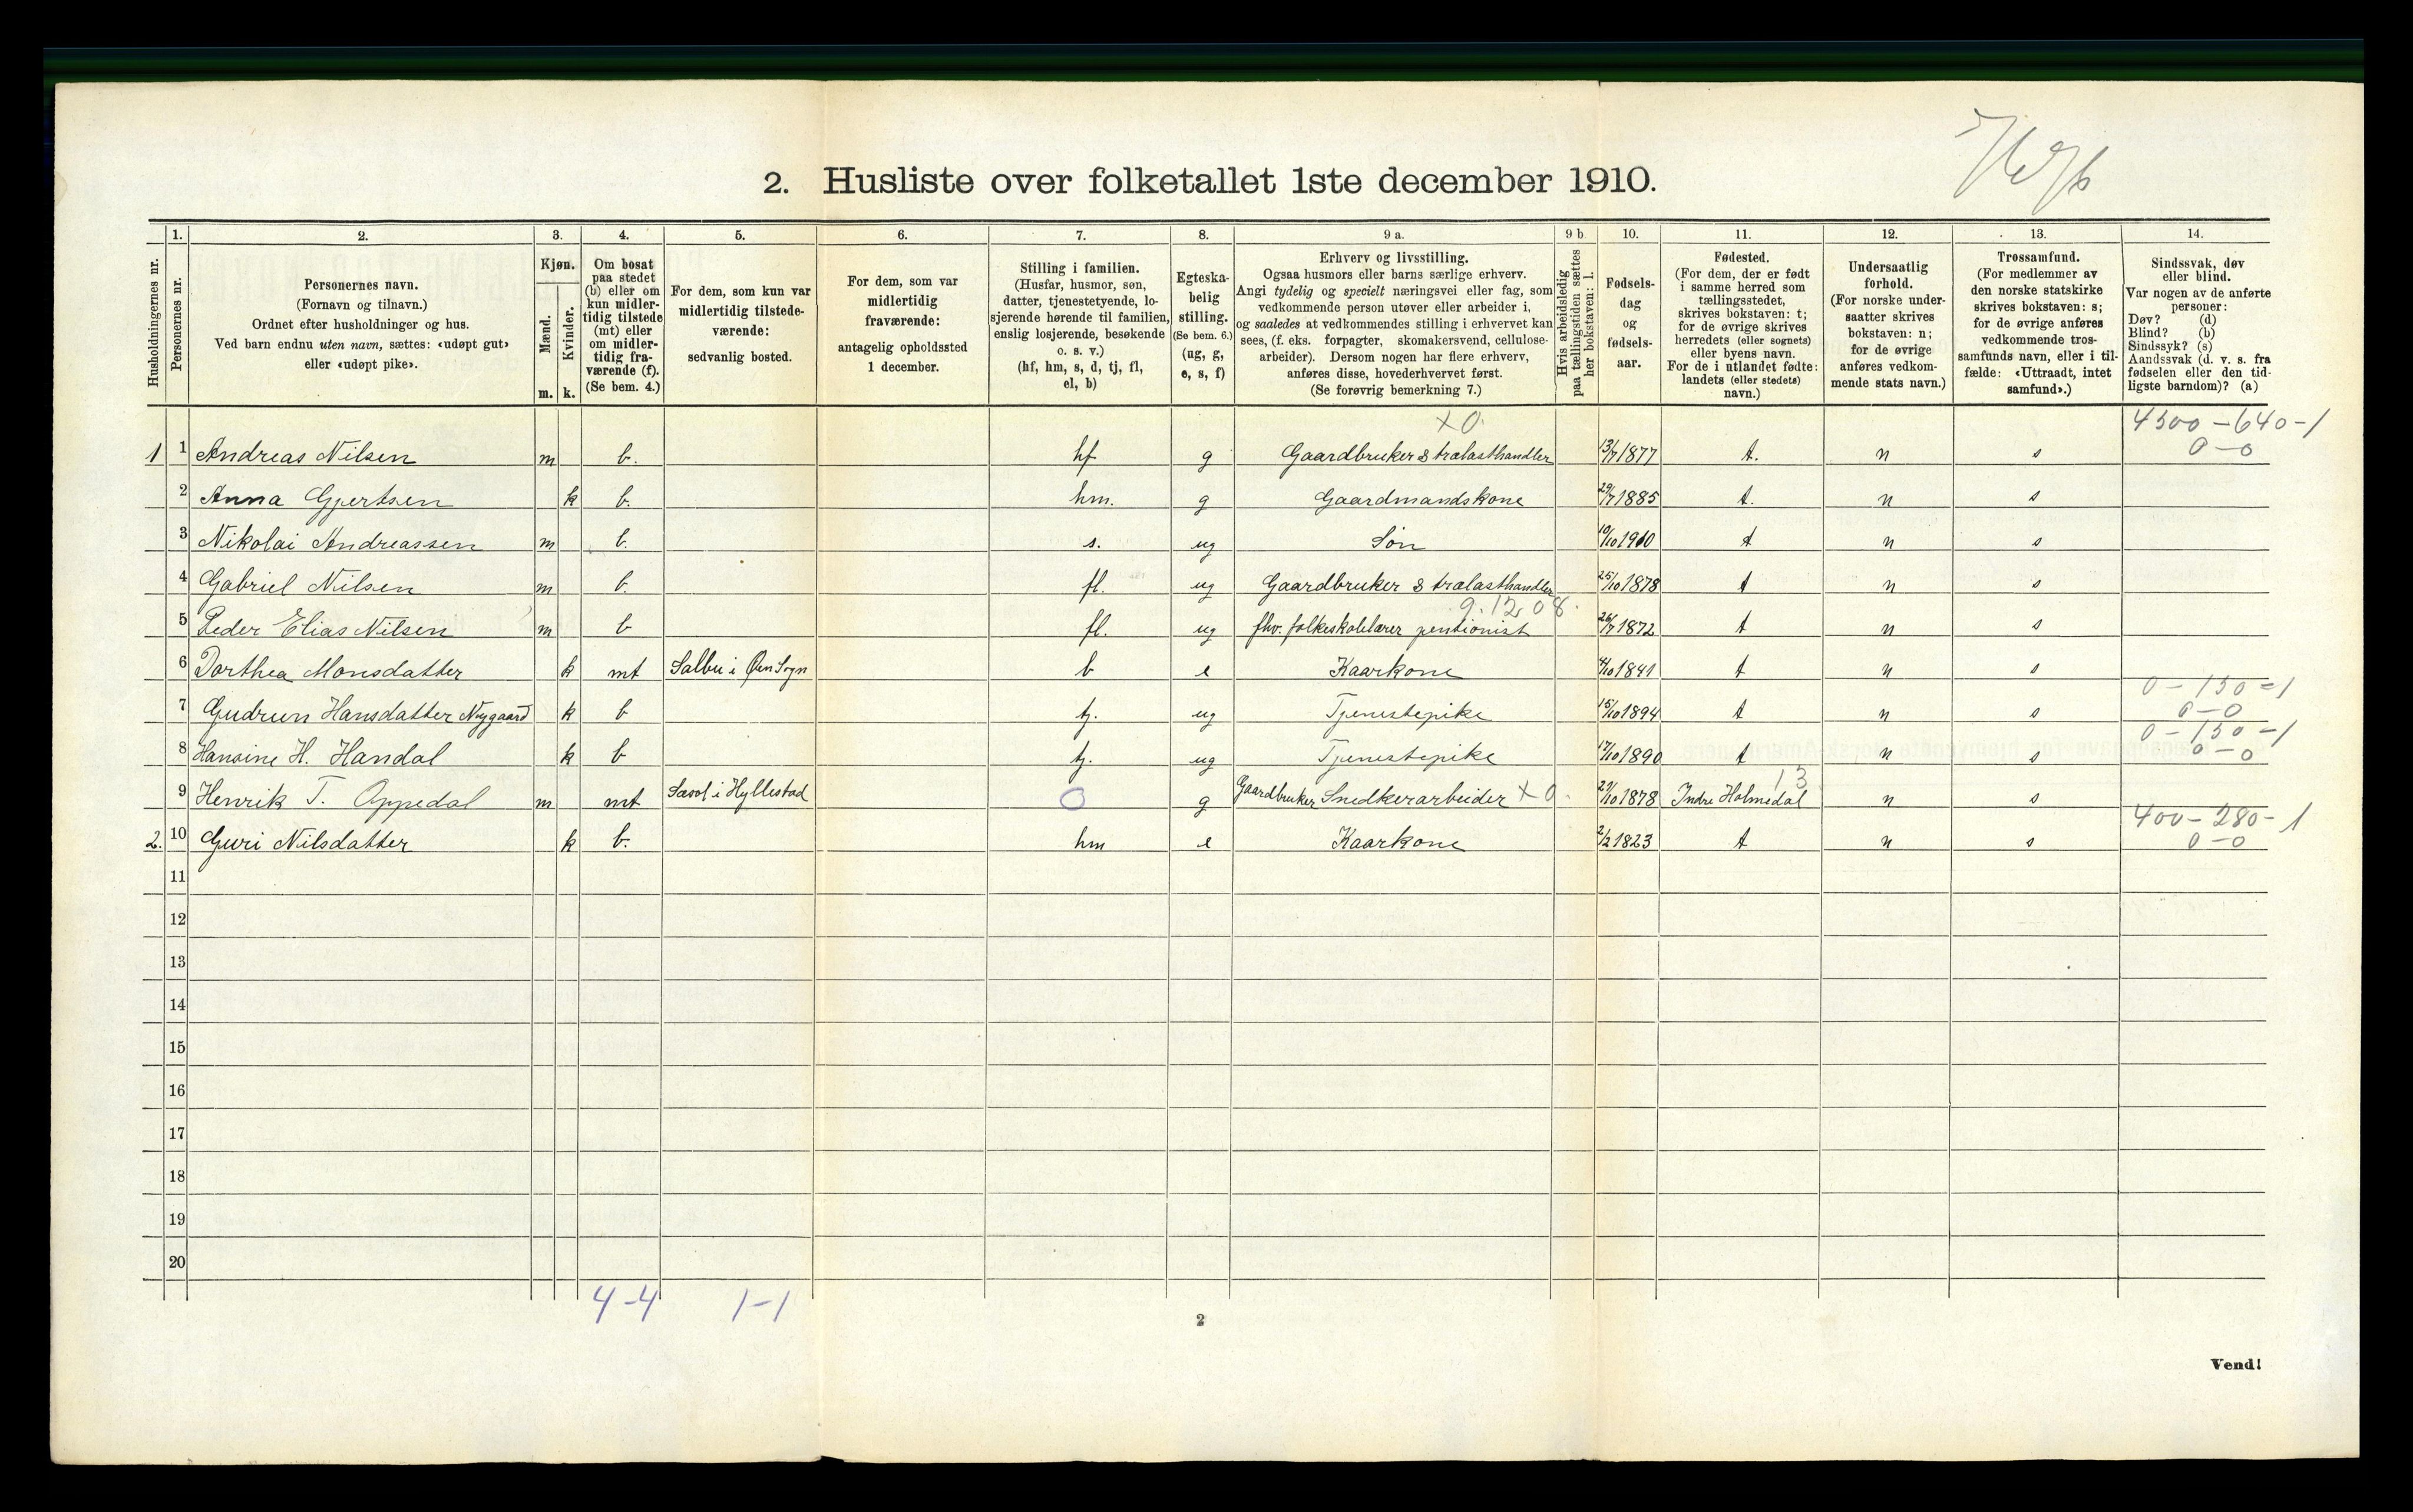 2. Husliste over folketallet 1ste december 1910.
Husholdningernes nr.
1. Personernes nr.
2. Personernes navn.
(Fornavn og tilnavn.)
Ordnet efter husholdninger og hus.
Ved barn endnu uten navn, sættes: «udøpt gut»
eller «udøpt pike».
3. Kjøn.
Mænd. m.
Kvinder. k.
4. Om bosat
paa stedet
(b) eller om
kun midler-
tidig tilstede
(mt) eller
om midler-
tidig fra-
værende (f).
(Se bem. 4.)
5. For dem, som kun var
midlertidig tilstede-
værende:
sedvanlig bosted.
6. For dem, som var
midlertidig
fraværende:
antagelig opholdssted
1 december.
7. Stilling i familien.
(Husfar, husmor, søn,
datter, tjenestetyende, lo-
sjerende hørende til familien,
enslig losjerende, besøkende
o. s. v.)
(hf, hm, s, d, tj, fl,
el, b)
8. Egteska-
belig
stilling.
(Se bem. 6.)
(ug, g,
e, s, f)
9 a. Erhverv og livsstilling.
Ogsaa husmors eller barns særlige erhverv.
Angi tydelig og specielt næringsvei eller fag, som
vedkommende person utøver eller arbeider i,
og saaledes at vedkommendes stilling i erhvervet kan
sees, (f. eks. forpagter, skomakersvend, cellulose-
arbeider). Dersom nogen har flere erhverv,
anføres disse, hovederhvervet først.
(Se forøvrig bemerkning 7.)
9 b Hvis arbeidsledig
paa tællingstiden sættes
her bokstaven: l.
10. Fødsels-
dag
og
fødsels-
aar.
11. Fødested.
(For dem, der er født
i samme herred som
tællingsstedet,
skrives bokstaven: t;
for de øvrige skrives
herredets (eller sognets)
eller byens navn.
For de i utlandet fødte:
landets (eller stedets)
navn.)
12. Undersaatlig
forhold.
(For norske under-
saatter skrives
bokstaven: n;
for de øvrige
anføres vedkom-
mende stats navn.)
13. Trossamfund.
(For medlemmer av
den norske statskirke
skrives bokstaven: s;
for de øvrige anføres
vedkommende tros-
samfunds navn, eller i til-
fælde: «Uttraadt, intet
samfund».)
14. Sindssvak, døv
eller blind.
Var nogen av de anførte
personer:
Døv? (d)
Blind? (b)
Sindssyk? (s)
Aandssvak (d. v. s. fra
fødselen eller den tid-
ligste barndom)? (a)
x 0. 4500-640-1
1 1 Andreas Nilsen m b. hf g Gaardbruker & trælasthandler 13/7 1877 t. n s 0-0
2 Anna Gjertsen k b. hm. g Gaardmandskone 29/7 1885 t. n s
3 Nikolai Andreassen m b. s. ug Søn 10/10 1910 t n s
4 Gabriel Nilsen m b. fl. ug Gaardbruker & trælasthandler 25/10 1878 t n s
9.12.08.
5 Peder Elias Nilsen m b fl. ug fhv. folkeskolelærer pentionist 26/7 1872 t n s
6 Dorthea Monsdatter k mt Salbu i Øen Sogn b e Kaarkone 4/10 1841 t n s
0-150-1
7 Gudrun Hansdatter Nygaard k b tj. ug Tjenestepike 15/10 1894 t n s 0-0
0-150-1
8 Hansine H. Handal k b tj. ug Tjenestepike 17/10 1890 t n s 0-0
13
9 Henrik T. Oppedal m mt Sæsol i Hyllestad 0 g Gaardbruker Snedkerarbeider x 0. 29/10 1878 Indre Holmedal n s
400-280-1
2. 10 Guri Nilsdatter k b. hm e Kaarkone 2/2 1823 t n s 0-0
11
12
13
14
15
16
17
18
19
20
4-4 1-1
2
Vend!